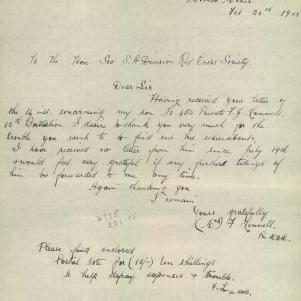 Feb 21st 191
To The Hon Sec S.A Division Red Cross Society
Dear Sir
Having received your letter of
the 14 inst. concerning my son No 4511 Private F J
10th Battalion, I desire to thank you very much for the
trouble you went to to find out his whereabouts.
I have received no letter from him since July 19th
would feel very grateful if any further tidings of
him be forwarded to me any time.
Again thanking you
I remain
Yours gratefully
Please find enclosed
Postal Note for (10/-) ten shillings
to help defray expenses & trouble.